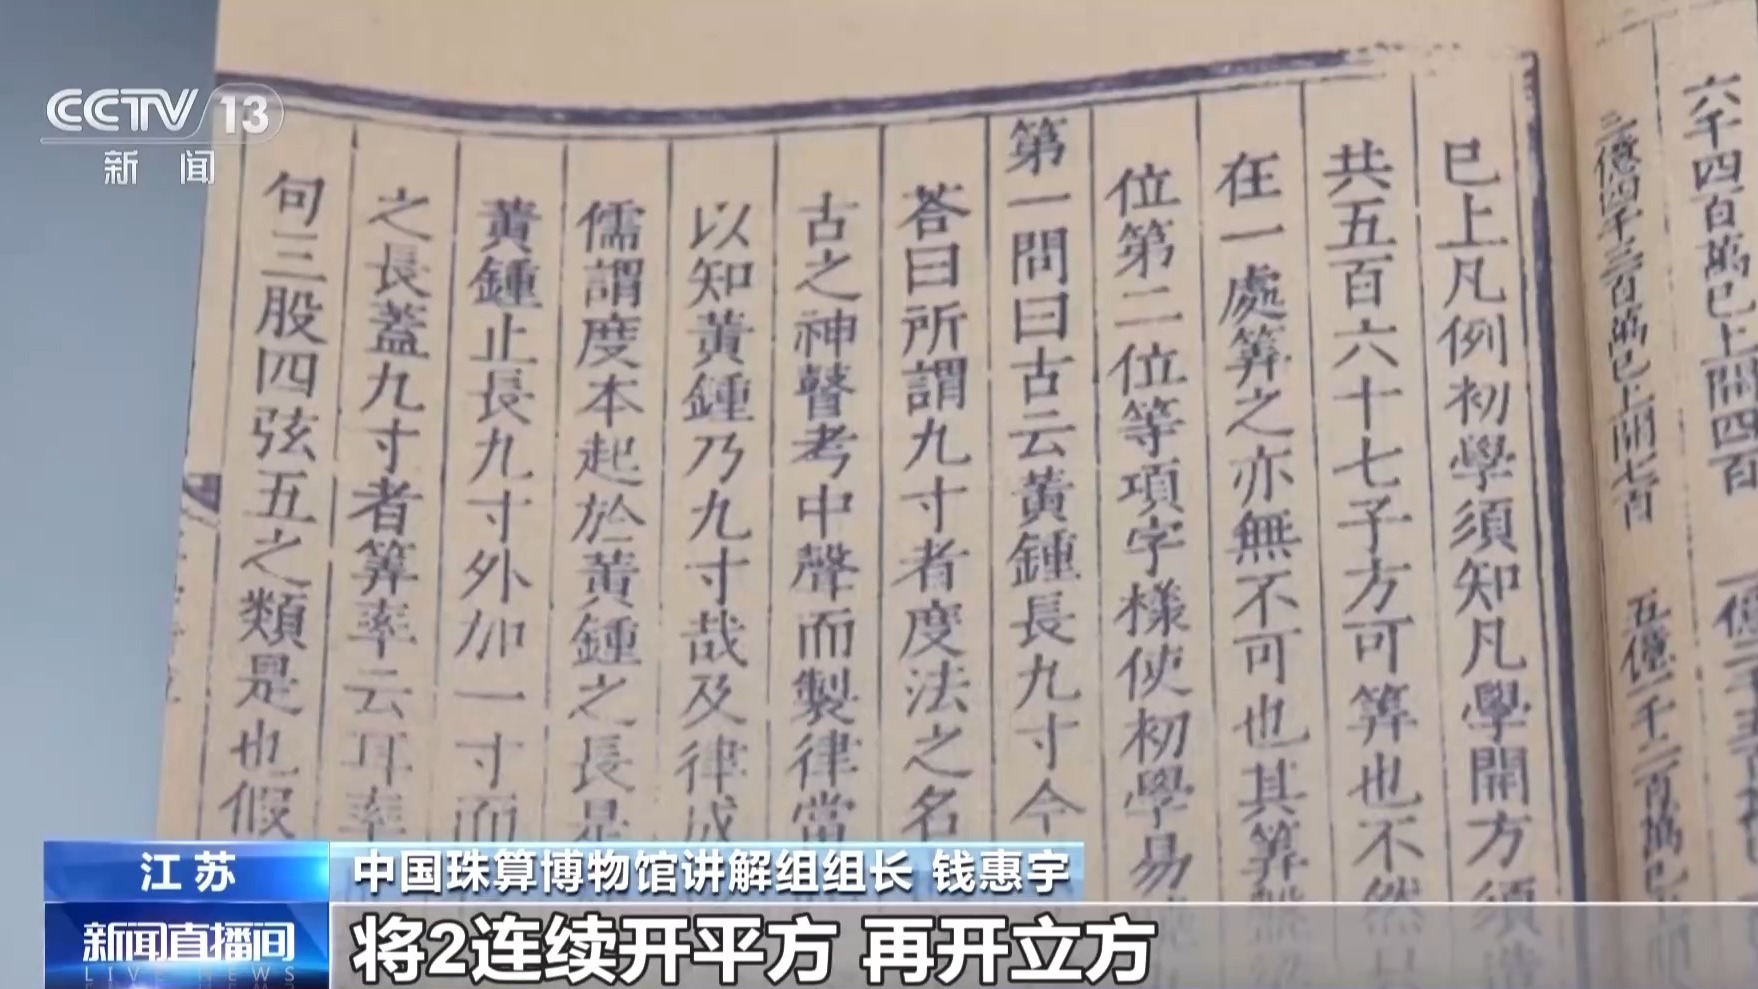 CCTV 13
新闻
六千四百萬已上開四百
三億四千三百萬已上開七百
已上凡例初學須知凡學開方須
共五百六十七子方可筭也不然
在一處筭之亦無不可也其筭
位第二位等項字樣使初學易
第一問曰古云黃鍾長九寸今
答曰所謂九寸者度法之名
古之神瞽考中聲而製律當
以知黃鍾乃九寸哉及律成
儒謂度本起於黃鍾之長是
黃鍾止長九寸外加一寸而
之長蓋九寸者筭率云耳率
句三股四弦五之類是也假
江苏
中国珠算博物馆讲解组组长 钱惠宇
新闻直播间
LIVE NEWS
将2连续开平方 再开立方